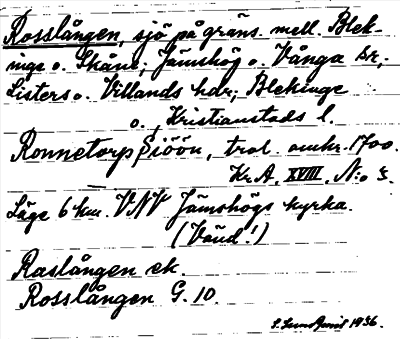 Rosslången, sjö på gräns. mell. Blek-
inge o. Skåne; Jämshög o. Vånga sr,
Listers o. Villands hdr; Blekinge
o. Kristianstads l.
Ronnetorp Siöön, trol. omkr. 1700.
Kr.A. XVIII. N:o
Läge 6 km. VNV Jämshögs kyrka.
(Vänd!)
Raslången ek.
Rosslången G. 10.
S. Lundquist 1936.